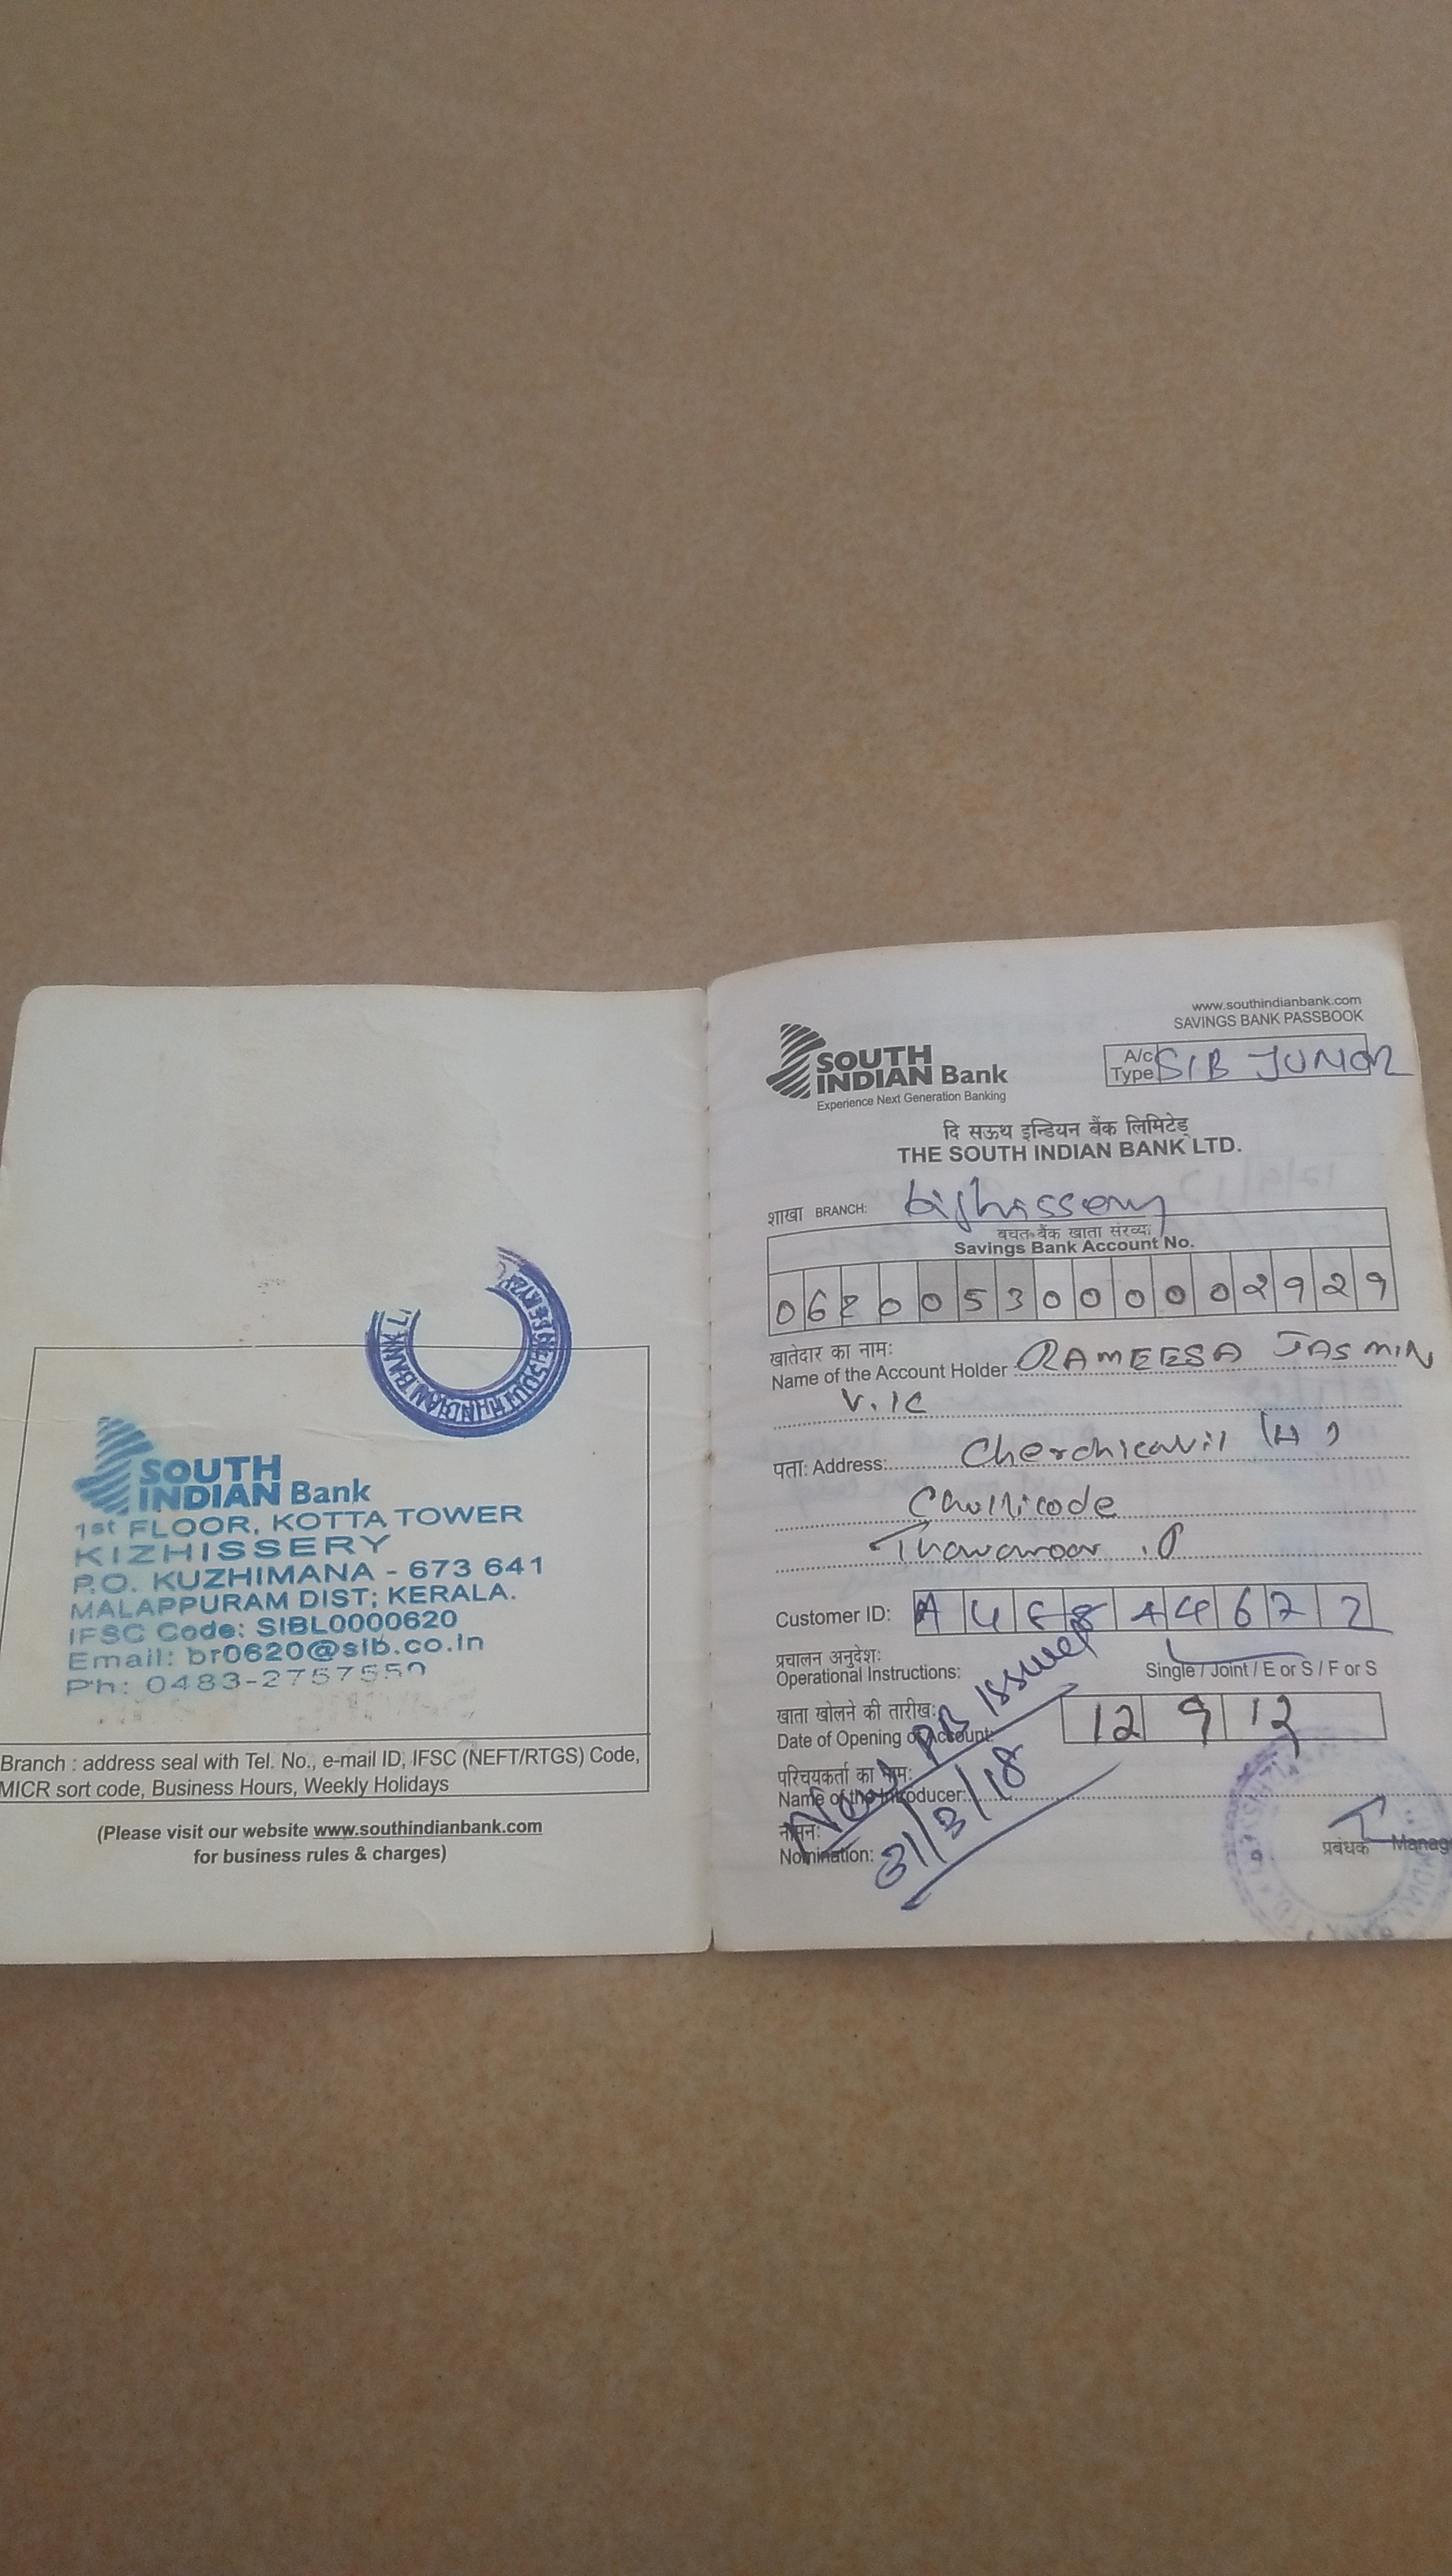 SOUTH
INDIAN Bank
1st FLOOR, KOTTA TOWER
KIZHISSERY
P.O. KUZHIMANA - 673 641
MALAPPURAM DIST; KERALA.
IFSC Code: SIBL0000620
Email: br0620@sib.co.in
Ph: 0483-2757550
Branch : address seal with Tel. No., e-mail ID, IFSC (NEFT/RTGS) Code,
MICR sort code, Business Hours, Weekly Holidays
(Please visit our website www.southindianbank.com
for business rules & charges)
www.southindianbank.com
SAVINGS BANK PASSBOOK
SOUTH
INDIAN Bank
Experience Next Generation Banking
A/c Type SIB JUNIOR
दि सऊथ इन्डियन बैंक लिमिटेड्
THE SOUTH INDIAN BANK LTD.
शाखा BRANCH: Kizhissery
बचत बैंक खाता संख्या
Savings Bank Account No.
0620053000002929
खातेदार का नाम:
Name of the Account Holder RAMEESA JASMIN
V. K
पता: Address: Cherchicavil (H)
Chullicode
Thavanoor .P
Customer ID: A
प्रचालन अनुदेश:
Operational Instructions: Single / Joint / E or S / F or S
खाता खोलने की तारीख:
Date of Opening of Account: 12 9 12
परिचयकर्ता का नाम:
Name of the Introducer:
नामन:
Nomination:
New PB Issued
31/3/18
प्रबंधक Manag